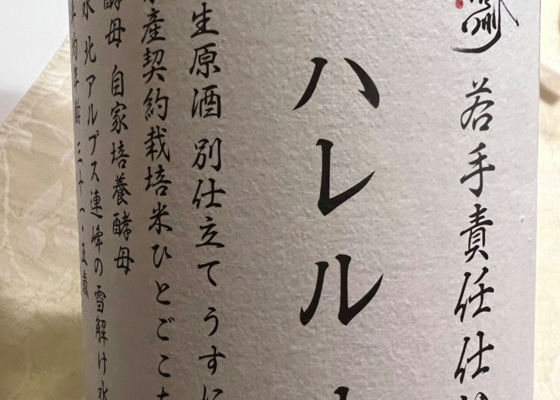 若手責任仕
ハレル
生原酒 別仕立て うすに
産契約栽培米ひとごこ
酵母 自家培養酵母
水 北アルプス連峰の雪解け水
均年齢 三十一・五歳